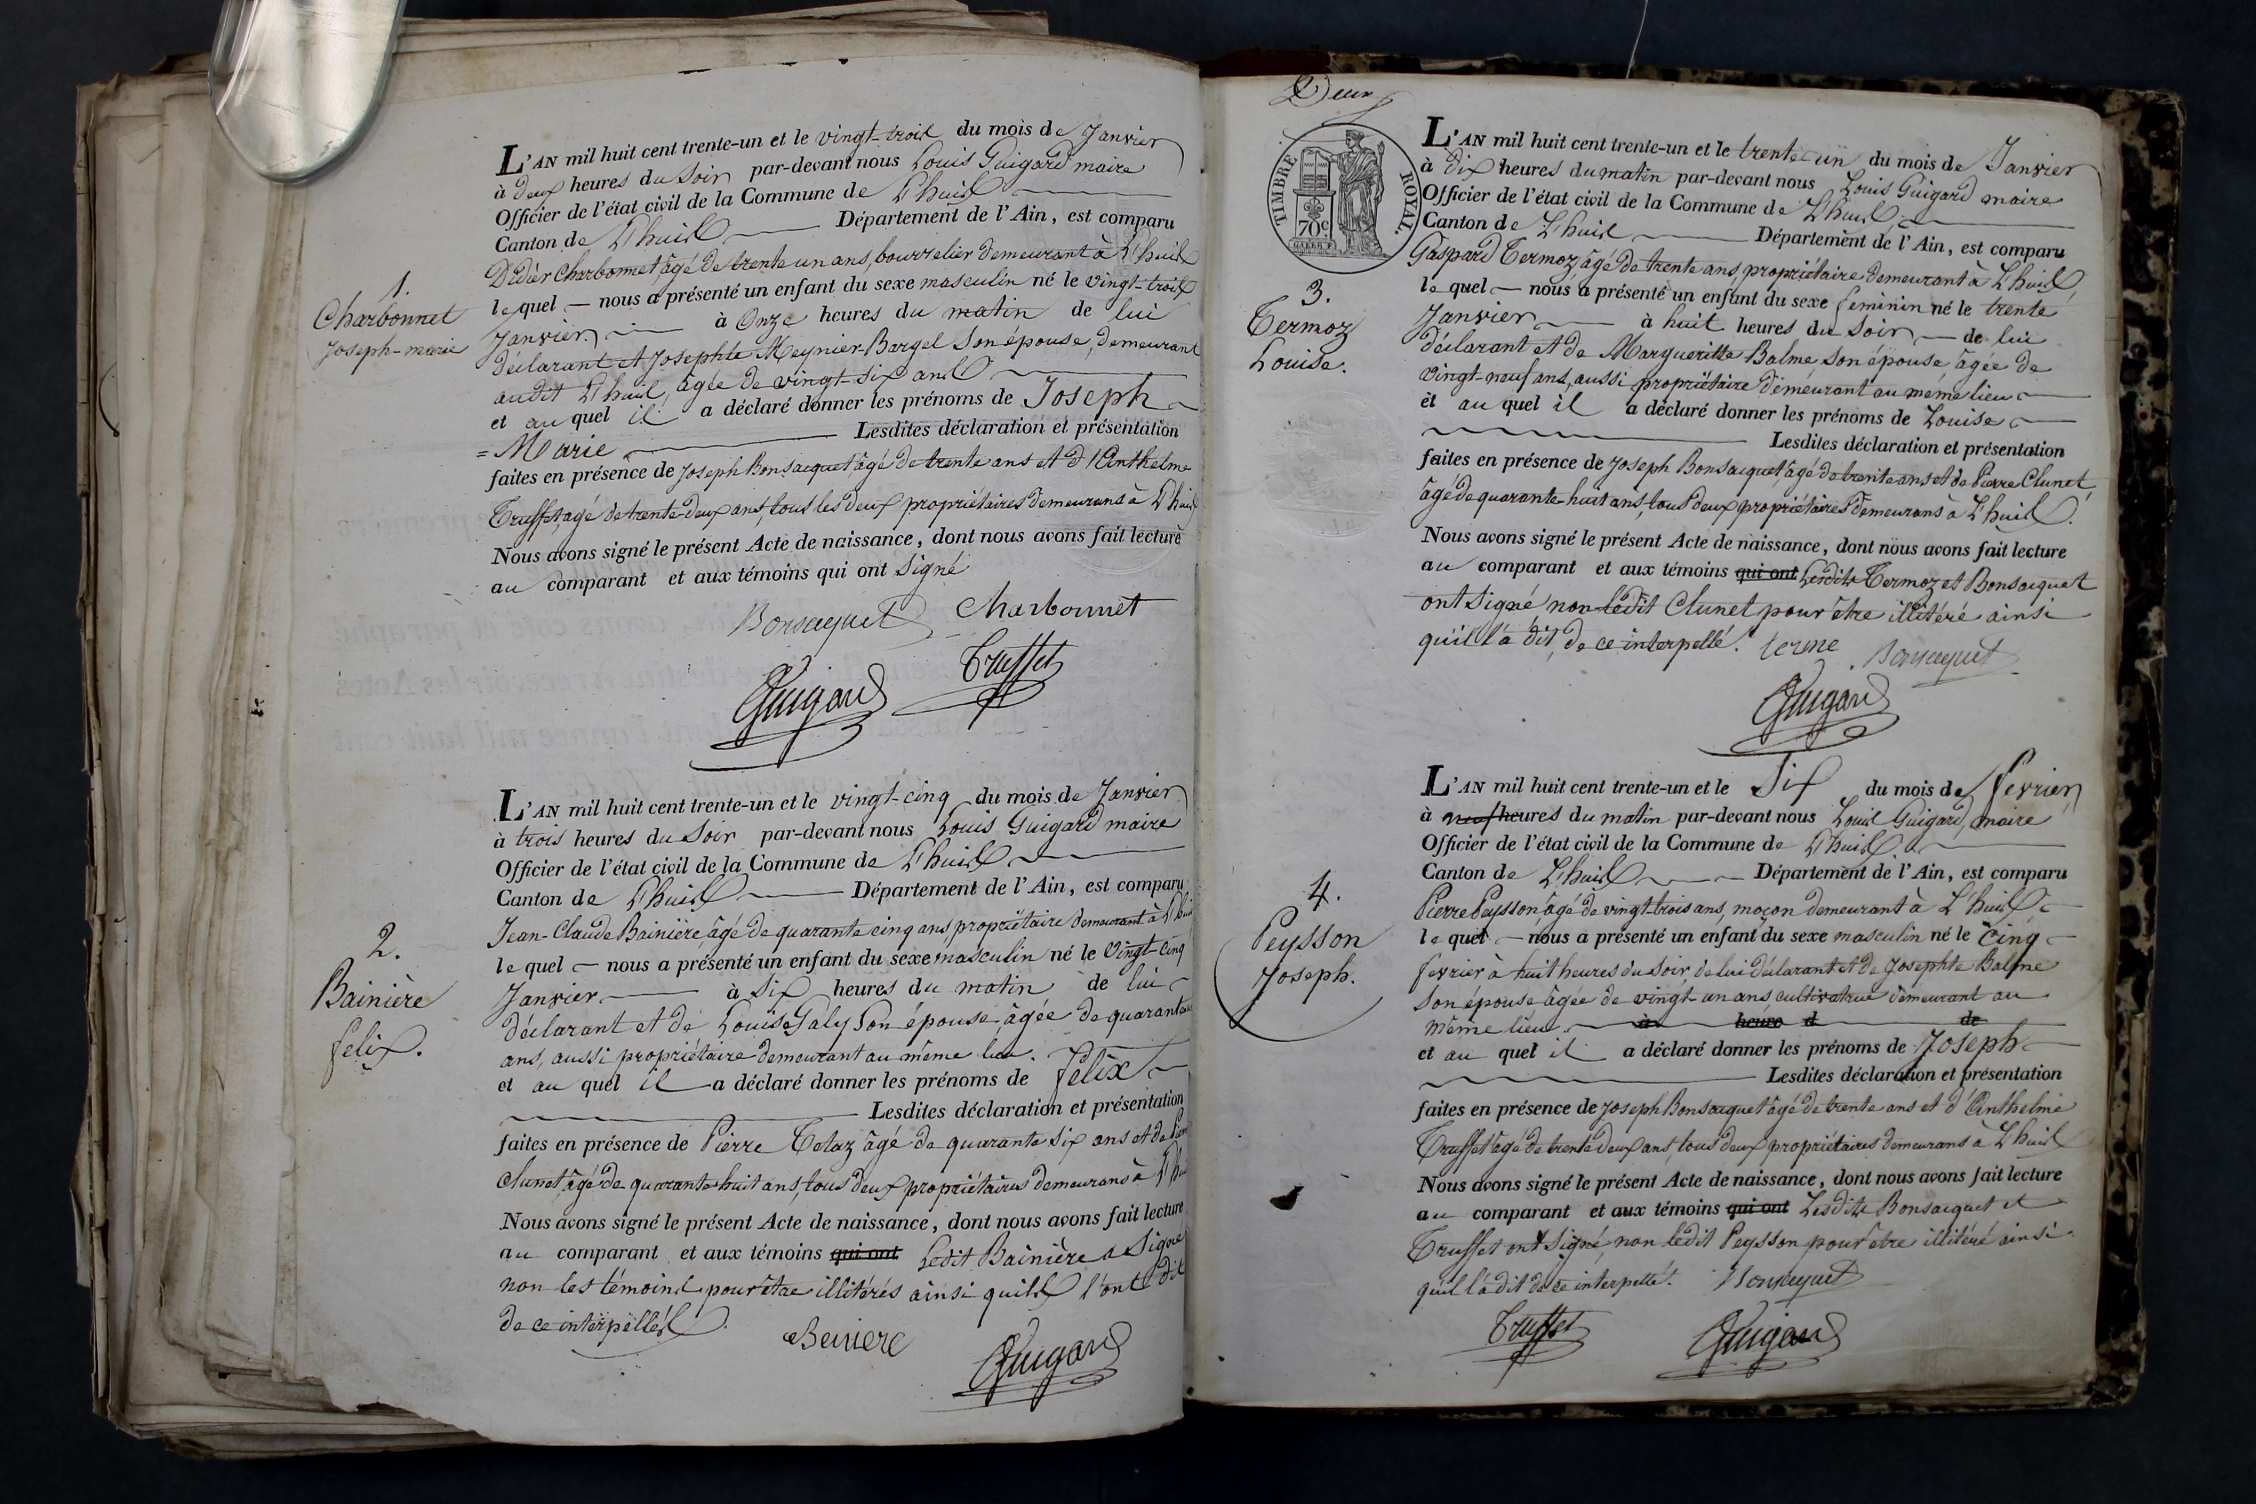 L'AN mil huit cent trente-un et le vingt-trois du mois de Janvier
à deux heures du Soir par-devant nous Louis Guigard maire
Officier de l'état civil de la Commune de L'huis
Canton de L'huis Département de l'Ain, est comparu
Didier Charbonnet, âgé de trente un ans, bourrelier demeurant à L'huis
1.
Charbonnet
Joseph-marie
lequel nous a présenté un enfant du sexe masculin né le vingt-trois
Janvier à Onze heures du matin de lui
déclarant et Josephte Meynier-Bargel son épouse, demeurant
audit L'huis, âgée de vingt-six ans
et au quel il a déclaré donner les prénoms de Joseph
= Marie Lesdites déclaration et présentation
faites en présence de Joseph Bonsacquet âgé de trente ans et d'Anthelme
Truffet, agé de trente-deux ans, tous les deux propriétaires demeurans à L'huis
Nous avons signé le présent Acte de naissance, dont nous avons fait lecture
au comparant et aux témoins qui ont Signé
Bonsacquet Charbonnet
Guigard Truffet
L'AN mil huit cent trente-un et le vingt-cinq du mois de Janvier
à trois heures du Soir par-devant nous Louis Guigard maire
Officier de l'état civil de la Commune de L'huis
Canton de L'huis Département de l'Ain, est comparu
2.
Bainière
felix.
Jean-Claude Bainière, âgé de quarante cinq ans, propriétaire demeurant à L'huis
lequel nous a présenté un enfant du sexe masculin né le vingt-cinq
Janvier à Six heures du matin de lui
déclarant et de Louise Galy Son épouse, âgée de quarante
ans, aussi propriétaire demeurant au même lieu.
et au quel il a déclaré donner les prénoms de félix
Lesdites déclaration et présentation
faites en présence de Pierre Tetaz âgé de quarante six ans et de Pierre
Clunet, âgé de quarante-huit ans, tous deux propriétaires demeurans à L'huis
Nous avons signé le présent Acte de naissance, dont nous avons fait lecture
au comparant et aux témoins qui ont Ledit Bainière a Signé
non les témoins pour être illitérés ainsi quils l'ont dit
de ce interpellés
Beiniere Guigard
Deux
TIMBRE ROYAL.
70c
L'AN mil huit cent trente-un et le trente-un du mois de Janvier
à dix heures du matin par-devant nous Louis Guigard maire
Officier de l'état civil de la Commune de L'huis
Canton de L'huis Département de l'Ain, est comparu
Gaspard Termoz âgé de trente ans, propriétaire demeurant à L'huis
3.
Termoz
Louise.
lequel nous a présenté un enfant du sexe feminin né le trente
Janvier à huit heures du Soir de lui
déclarant et de Margueritte Balme Son épouse âgée de
vingt-neuf ans, aussi propriétaire demeurant au même lieu
et au quel il a déclaré donner les prénoms de Louise
Lesdites déclaration et présentation
faites en présence de Joseph Bonsacquet, âgé de trente ans et de Pierre Clunet
âgé de quarante-huit ans, tous deux propriétaires demeurans à L'huis.
Nous avons signé le présent Acte de naissance, dont nous avons fait lecture
au comparant et aux témoins qui ont Lesdits Termoz et Bonsacquet
ont Signé non ledit Clunet pour être illitéré ainsi
qu'il l'a dit, de ce interpellé. terme Bonsacquet
Guigard
L'AN mil huit cent trente-un et le Six du mois de fevrier
à neuf heures du matin par-devant nous Louis Guigard, maire
Officier de l'état civil de la Commune de L'huis
Canton de L'huis Département de l'Ain, est comparu
4.
Peysson
Joseph.
Pierre Peysson, âgé de vingt-trois ans, maçon demeurant à L'huis
lequel nous a présenté un enfant du sexe masculin né le cinq
fevrier à huit heures du Soir de lui déclarant et de Josephte Balme
Son épouse âgée de vingt un ans cultivatrice demeurant au
même lieu à heure d de
et au quel il a déclaré donner les prénoms de Joseph
Lesdites déclaration et présentation
faites en présence de Joseph Bonsacquet âgé de trente ans et d'Anthelme
Truffet âgé de trente deux ans, tous deux propriétaires demeurans à L'huis
Nous avons signé le présent Acte de naissance, dont nous avons fait lecture
au comparant et aux témoins qui ont Lesdits Bonsacquet et
Truffet ont Signé non ledit Peysson pour être illitéré ainsi
quil l'a dit de ce interpellé. Bonsacquet
Truffet Guigard